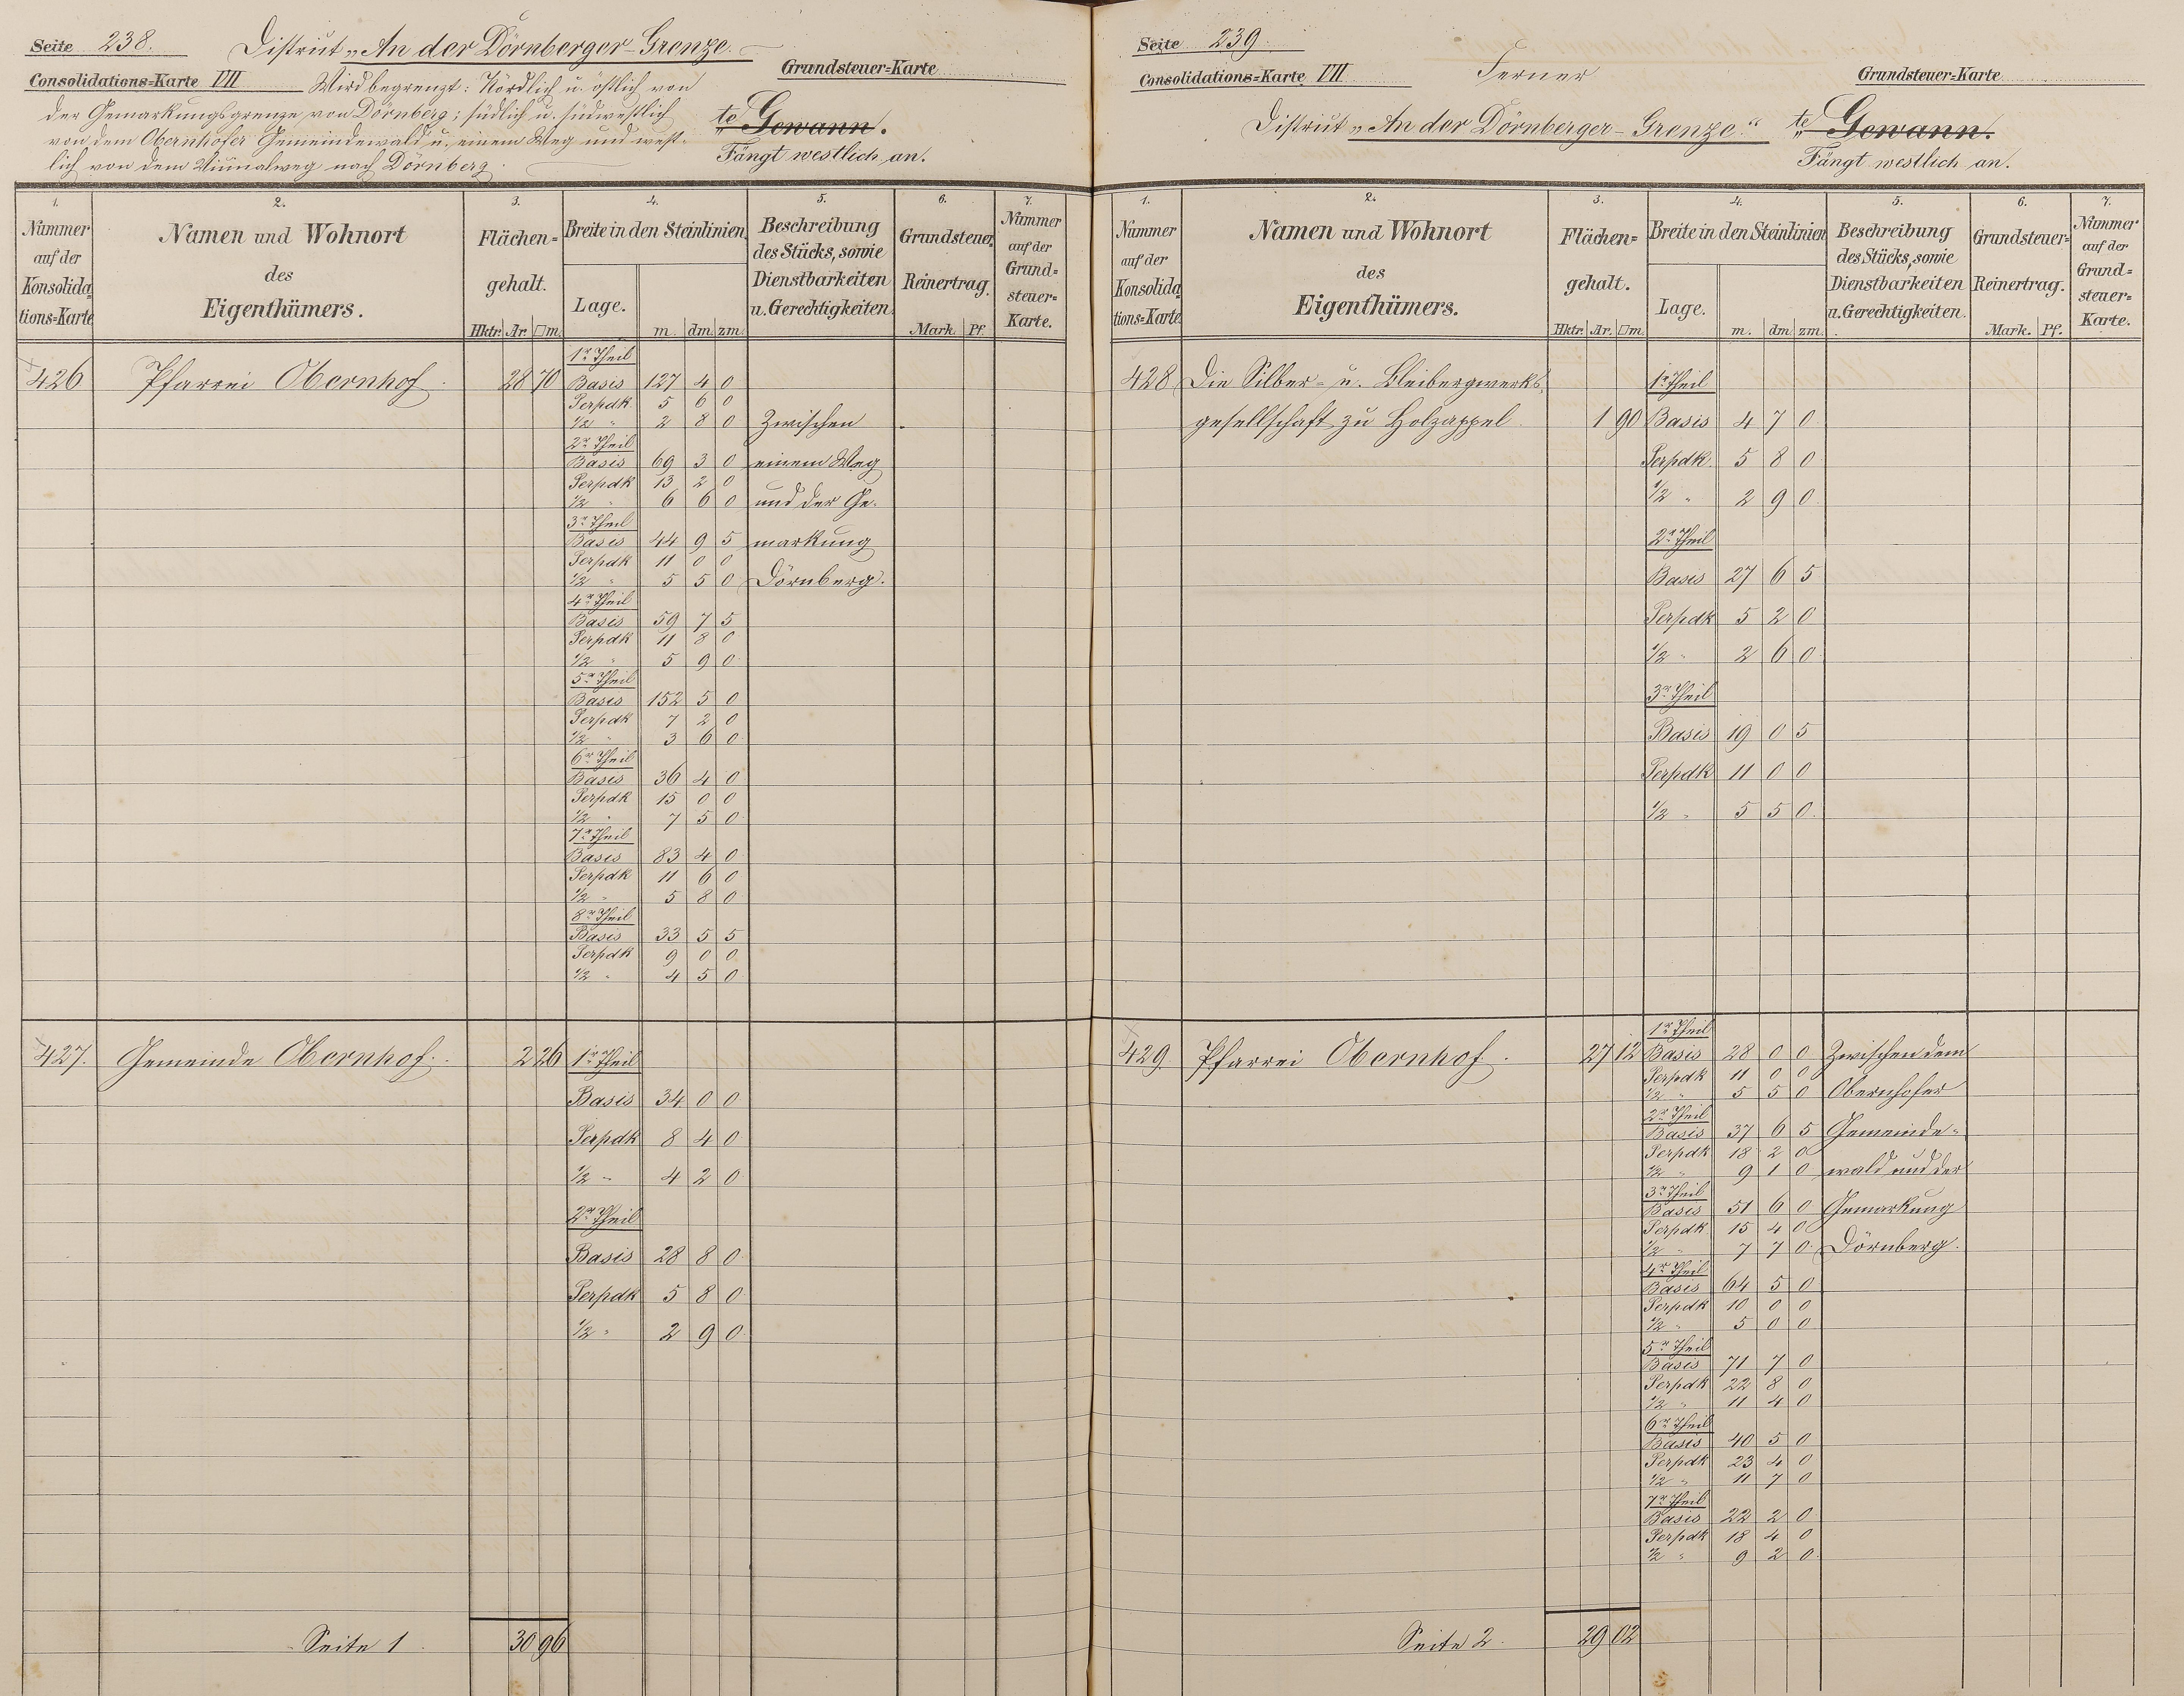 Seite 238.
District „An der Dörnberger-Grenze.
Consolidations=Karte VII
Grundsteuer-Karte
Wird begrenzt: Nördlich u. östlich von
der Gemarkungsgrenze von Dörnberg; südlich u. südwestlich
von dem Obernhofer Gemeindewald u. einem Weg und west-
lich von dem Vicinalweg nach Dörnberg.
te Gewann.
Fängt westlich an.
1. 2. 3. 4. 5. 6. 7.
Nummer auf der Konsolida-tions=Karte
Namen und Wohnort des Eigenthümers.
Flächen= gehalt.
Hktr. Ar. □m.
Breite in den Steinlinien.
Lage. m. dm. zm.
Beschreibung des Stücks, sowie Dienstbarkeiten u. Gerechtigkeiten.
Grundsteuer-Reinertrag.
Mark. Pf.
Nummer auf der Grund= steuer= Karte.
1r. Theil
426 Pfarrei Obernhof. 28 70 Basis 127 4 0
Perpdk. 5 6 0
1/2 " 2 8 0 Zwischen
2r. Theil
Basis 69 3 0 einem Weg
Perpdk 13 2 0
1/2 " 6 6 0 und der Ge-
3r. Theil
Basis 44 9 5 markung
Perpdk 11 0 0
1/2 " 5 5 0 Dörnberg.
4r. Theil
Basis 59 7 5
Perpdk 11 8 0
1/2 " 5 9 0
5r. Theil
Basis 152 5 0
Perpdk 7 2 0
1/2 " 3 6 0
6r. Theil
Basis 36 4 0
Perpdk 15 0 0
1/2 " 7 5 0
7r. Theil
Basis 83 4 0
Perpdk 11 6 0
1/2 " 5 8 0
8r. Theil
Basis 33 5 5
Perpdk 9 0 0
1/2 " 4 5 0
427. Gemeinde Obernhof. 2 26 1r. Theil
Basis 34 0 0
Perpdk 8 4 0
1/2 " 4 2 0
2r. Theil
Basis 28 8 0
Perpdk 5 8 0
1/2 " 2 9 0
Seite 1. 30 96
Seite 239.
Consolidations=Karte VII
Ferner
Grundsteuer-Karte
District „An der Dörnberger-Grenze."
te Gewann.
Fängt westlich an.
1. 2. 3. 4. 5. 6. 7.
Nummer auf der Konsolida-tions=Karte
Namen und Wohnort des Eigenthümers.
Flächen= gehalt.
Hktr. Ar. □m.
Breite in den Steinlinien
Lage. m. dm. zm.
Beschreibung des Stücks, sowie Dienstbarkeiten u. Gerechtigkeiten.
Grundsteuer-Reinertrag.
Mark. Pf.
Nummer auf der Grund= steuer= Karte.
428 Die Silber- u. Bleibergwerks- 1r. Theil
gesellschaft zu Holzappel 1 90 Basis 4 7 0
Perpdk. 5 8 0
1/2 " 2 9 0
2r. Theil
Basis 27 6 5
Perpdk 5 2 0
1/2 " 2 6 0
3r. Theil
Basis 19 0 5
Perpdk 11 0 0
1/2 " 5 5 0
1r. Theil
429. Pfarrei Obernhof. 27 12 Basis 28 0 0 Zwischen dem
Perpdk 11 0 0
1/2 " 5 5 0 Obernhofer
2r. Theil
Basis 37 6 5 Gemeinde-
Perpdk 18 2 0
1/2 " 9 1 0 wald und der
3r. Theil
Basis 51 6 0 Gemarkung
Perpdk 15 4 0
1/2 " 7 7 0 Dörnberg.
4r. Theil
Basis 64 5 0
Perpdk 10 0 0
1/2 " 5 0 0
5r. Theil
Basis 71 7 0
Perpdk 22 8 0
1/2 " 11 4 0
6r. Theil
Basis 40 5 0
Perpdk 23 4 0
1/2 " 11 7 0
7r. Theil
Basis 22 2 0
Perpdk 18 4 0
1/2 " 9 2 0
Seite 2. 29 02